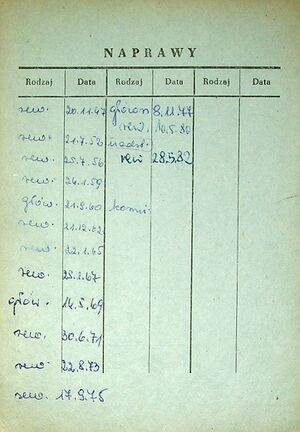 NAPRAWY
Rodzaj Data Rodzaj Data Rodzaj Data
rew. 20.11.47 główna 8.11.77
rew. 21.7.52 rew. 10.5.80
rew. 25.7.56 rew 28.5.82
rew. 26.1.59
głów. 21.9.60
rew. 21.12.62
rew. 22.1.65
rew. 25.2.67
głów. 14.5.69
rew. 30.6.71
rew. 22.8.73
rew. 17.9.75